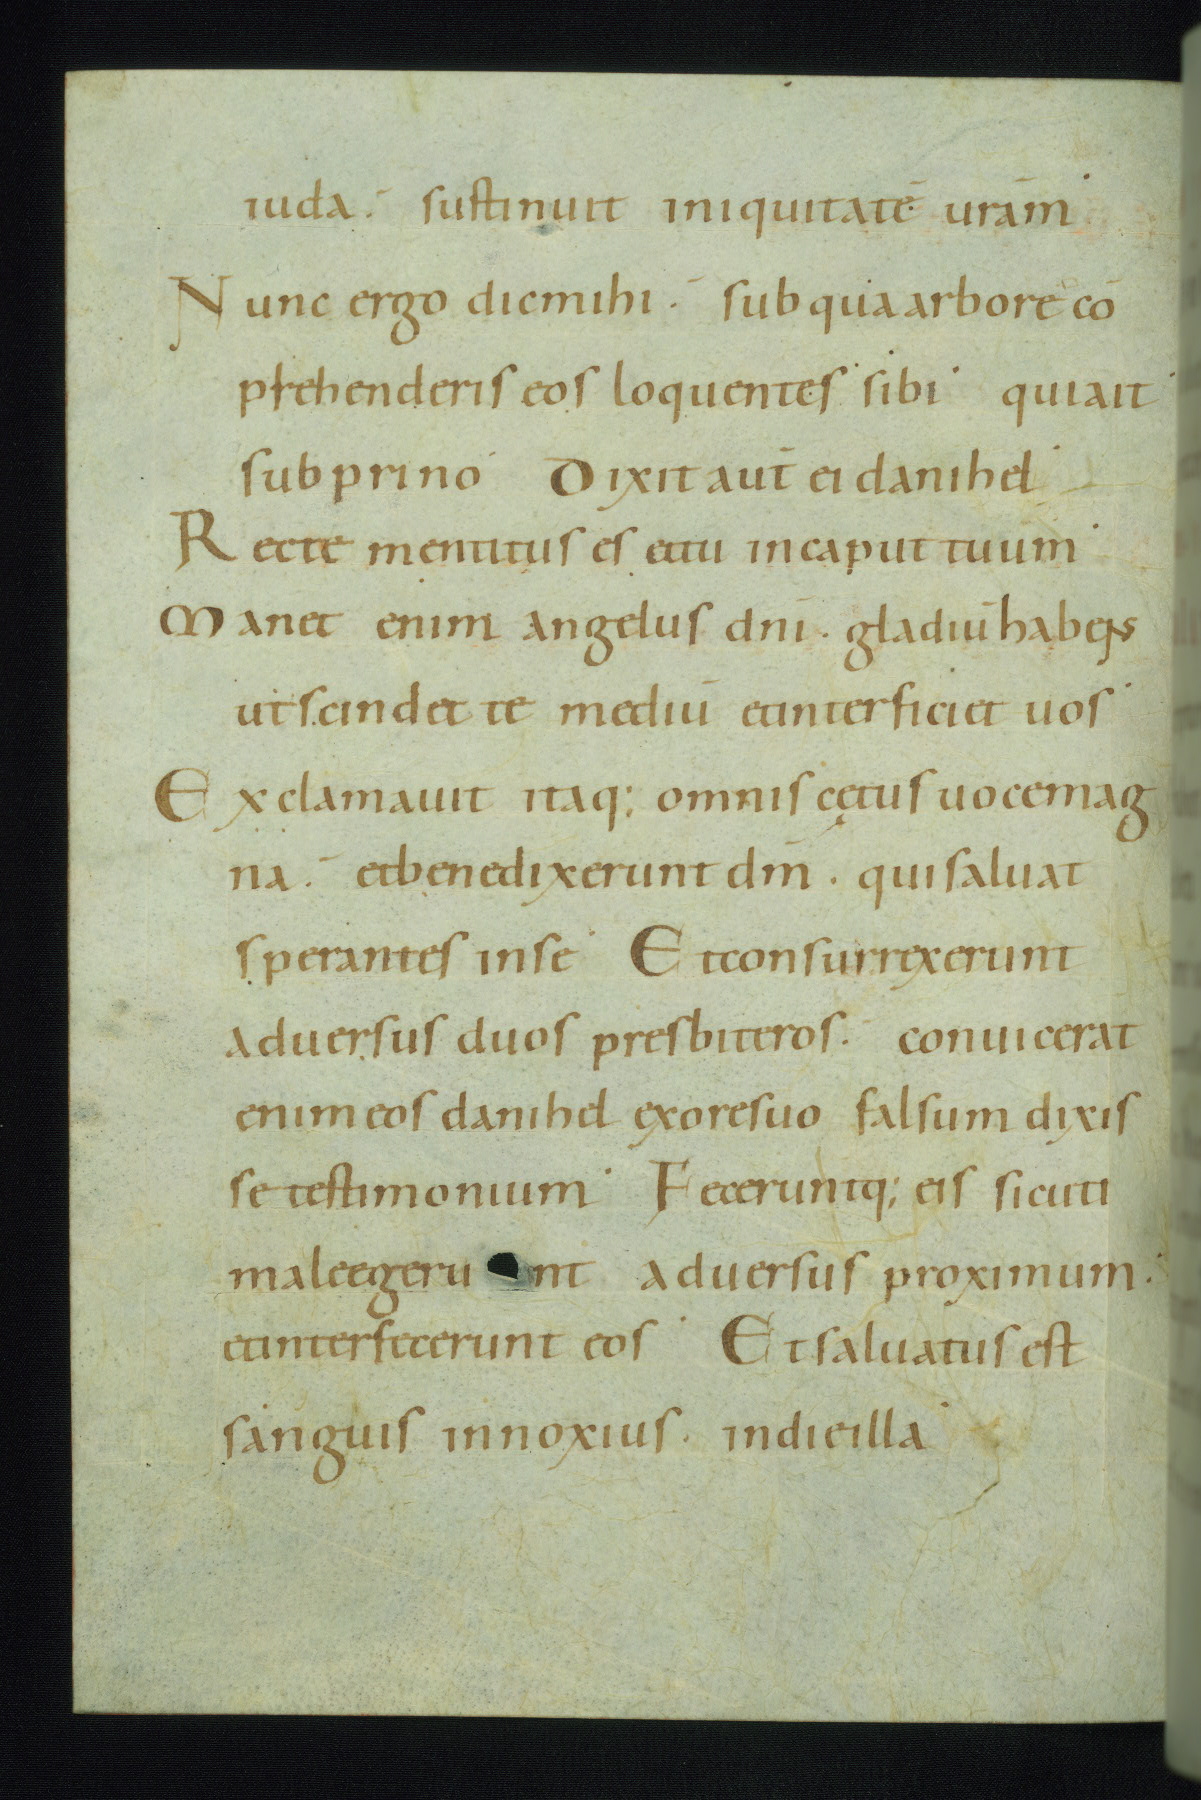 iuda. sustinuit iniquitatē urām
Nunc ergo dicmihi. sub qua arbore cō
prehenderis eos loquentes sibi qui ait
sub prino Dixit aut̄ ei danihel
Recte mentitus es et tu in caput tuum
Manet enim angelus dn̄i. gladiū habens
ut scindet te mediū et interficiet uos
Exclamauit itaq; omnis cętus uoce mag
na. et benedixerunt dm̄. qui saluat
sperantes in se Et consurrexerunt
aduersus duos presbiteros. conuicerat
enim eos danihel ex ore suo falsum dixis
se testimonium Feceruntq; eis sicuti
male egeru nt aduersus proximum.
et interfecerunt eos Et saluatus est
sanguis innoxius. in die illa